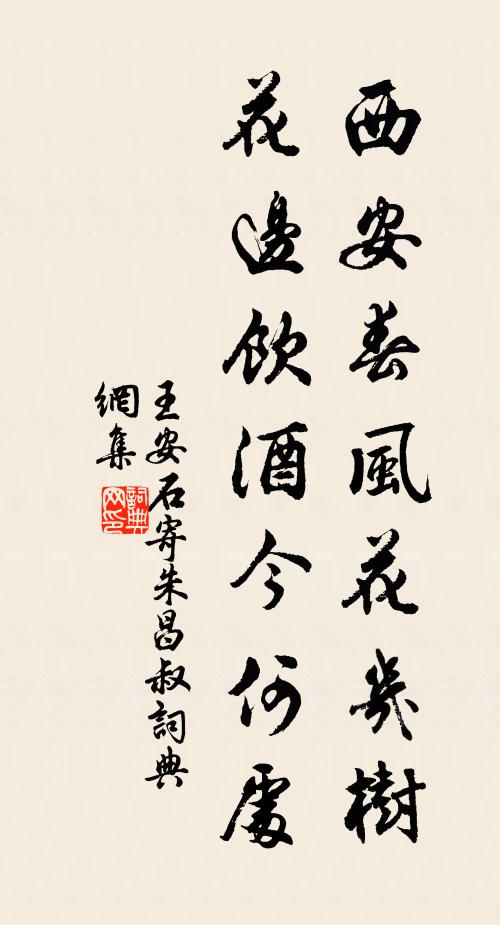 西安春風花幾樹
花邊飲酒今何處
王安石寄朱昌叔詞典
網集
詞典
网印